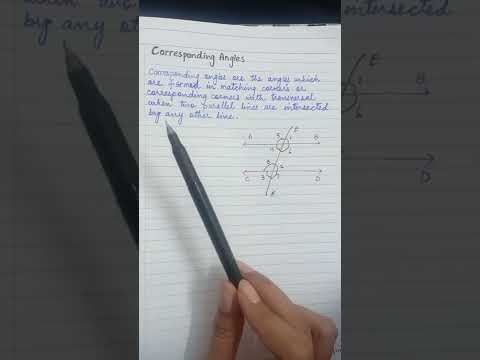 Corresponding Angles
Corresponding angles are the angles which
are formed in matching corners or
corresponding corners with transversal
when two parallel lines are intersected
by any other line.
A
B
C
D
E